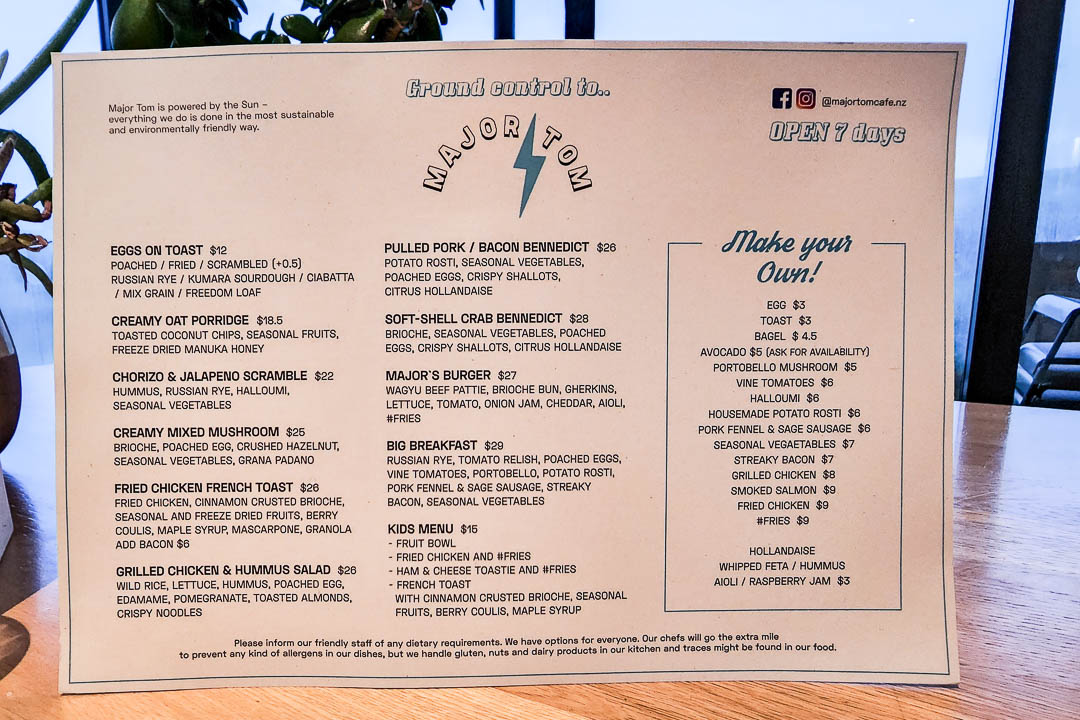 Major Tom is powered by the Sun –
everything we do is done in the most sustainable
and environmentally friendly way.
Ground control to..
MAJOR TOM
@majortomcafe.nz
OPEN 7 days
EGGS ON TOAST $12
POACHED / FRIED / SCRAMBLED (+0.5)
RUSSIAN RYE / KUMARA SOURDOUGH / CIABATTA
/ MIX GRAIN / FREEDOM LOAF
CREAMY OAT PORRIDGE $18.5
TOASTED COCONUT CHIPS, SEASONAL FRUITS,
FREEZE DRIED MANUKA HONEY
CHORIZO & JALAPENO SCRAMBLE $22
HUMMUS, RUSSIAN RYE, HALLOUMI,
SEASONAL VEGETABLES
CREAMY MIXED MUSHROOM $25
BRIOCHE, POACHED EGG, CRUSHED HAZELNUT,
SEASONAL VEGETABLES, GRANA PADANO
FRIED CHICKEN FRENCH TOAST $26
FRIED CHICKEN, CINNAMON CRUSTED BRIOCHE,
SEASONAL AND FREEZE DRIED FRUITS, BERRY
COULIS, MAPLE SYRUP, MASCARPONE, GRANOLA
ADD BACON $6
GRILLED CHICKEN & HUMMUS SALAD $26
WILD RICE, LETTUCE, HUMMUS, POACHED EGG,
EDAMAME, POMEGRANATE, TOASTED ALMONDS,
CRISPY NOODLES
PULLED PORK / BACON BENNEDICT $26
POTATO ROSTI, SEASONAL VEGETABLES,
POACHED EGGS, CRISPY SHALLOTS,
CITRUS HOLLANDAISE
SOFT-SHELL CRAB BENNEDICT $28
BRIOCHE, SEASONAL VEGETABLES, POACHED
EGGS, CRISPY SHALLOTS, CITRUS HOLLANDAISE
MAJOR`S BURGER $27
WAGYU BEEF PATTIE, BRIOCHE BUN, GHERKINS,
LETTUCE, TOMATO, ONION JAM, CHEDDAR, AIOLI,
#FRIES
BIG BREAKFAST $29
RUSSIAN RYE, TOMATO RELISH, POACHED EGGS,
VINE TOMATOES, PORTOBELLO, POTATO ROSTI,
PORK FENNEL & SAGE SAUSAGE, STREAKY
BACON, SEASONAL VEGETABLES
KIDS MENU $15
- FRUIT BOWL
- FRIED CHICKEN AND #FRIES
- HAM & CHEESE TOASTIE AND #FRIES
- FRENCH TOAST
WITH CINNAMON CRUSTED BRIOCHE, SEASONAL
FRUITS, BERRY COULIS, MAPLE SYRUP
Make your
Own!
EGG $3
TOAST $3
BAGEL $ 4.5
AVOCADO $5 (ASK FOR AVAILABILITY)
PORTOBELLO MUSHROOM $5
VINE TOMATOES $6
HALLOUMI $6
HOUSEMADE POTATO ROSTI $6
PORK FENNEL & SAGE SAUSAGE $6
SEASONAL VEGAETABLES $7
STREAKY BACON $7
GRILLED CHICKEN $8
SMOKED SALMON $9
FRIED CHICKEN $9
#FRIES $9
HOLLANDAISE
WHIPPED FETA / HUMMUS
AIOLI / RASPBERRY JAM $3
Please inform our friendly staff of any dietary requirements. We have options for everyone. Our chefs will go the extra mile
to prevent any kind of allergens in our dishes, but we handle gluten, nuts and dairy products in our kitchen and traces might be found in our food.